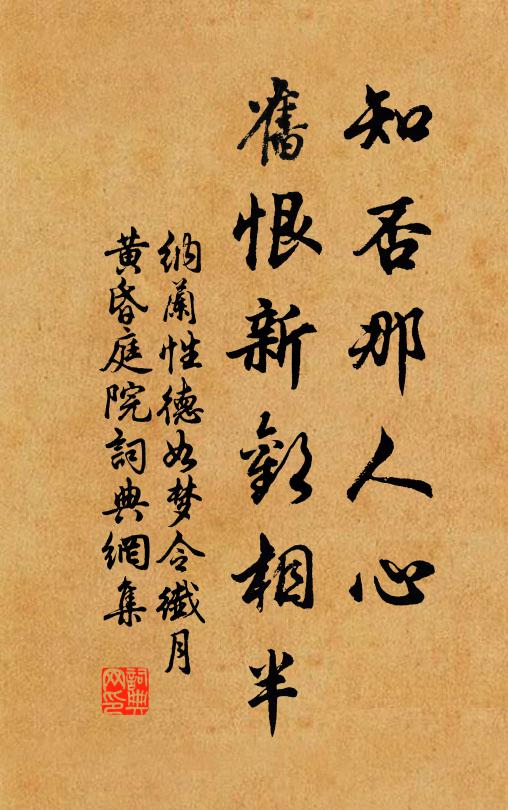 知否那人心
舊恨新歡相半
納蘭性德如梦令纖月
黃昏庭院詞典網集
詞典
网印